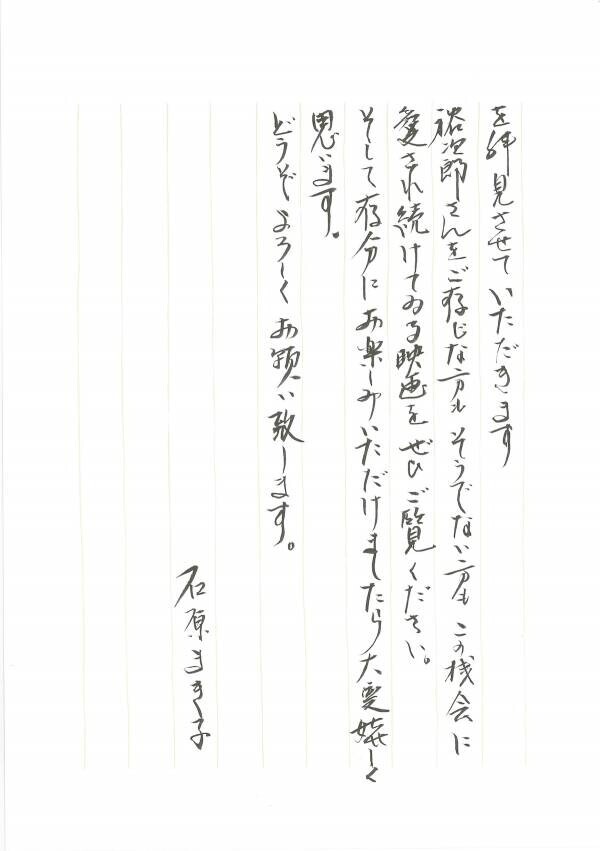 を拝見させていただきます
裕次郎さんをご存じな方も そうでない方も この機会に
愛され続けてゐる映画を ぜひご覧ください。
そして存分にお楽しみいただけましたら大変嬉しく
思います。
どうぞよろしく お願い致します。
石原まき子